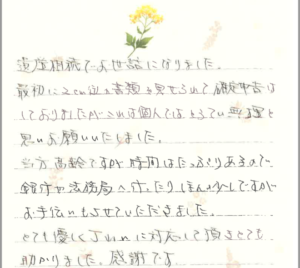 遺産相続でお世話になりました。
最初に2cm近い書類を見せられて確定申告は
しておりましたが これは個人ではとうてい無理と
思いお願いいたしました。
当方高齢ですが時間はたっぷりあるので
銀行や法務局へ行ったりほんの少しですが
お手伝いもさせていただきました。
とても優しくていねいに対応して頂きとても
助かりました。感謝です